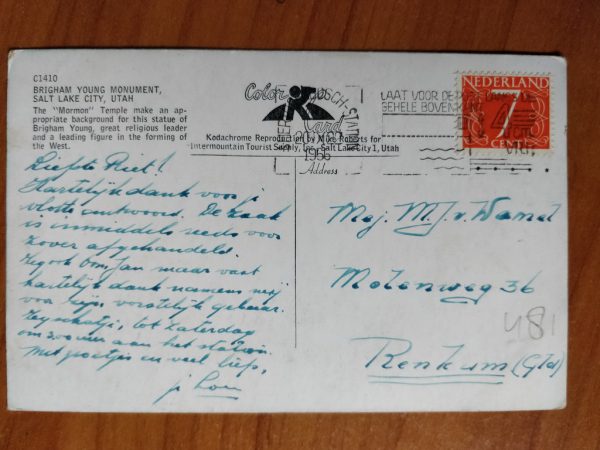 C1410
BRIGHAM YOUNG MONUMENT,
SALT LAKE CITY, UTAH
The "Mormon" Temple make an ap-
propriate background for this statue of
Brigham Young, great religious leader
and a leading figure in the forming of
the West.
Color Card
1966
Address
Kodachrome Reproduction by Mike Roberts for
Intermountain Tourist Supply, Inc., Salt Lake City 1, Utah
LAAT VOOR DE
GEHELE BOVEN
NEDERLAND
7
CENT
Liefste Riet!
Hartelijk dank voor je
vlotte antwoord. De zaak
is inmiddels reeds voor
zover afgehandeld.
Zeg ook Oom Jan maar vast
hartelijk dank namens mij
voor zijn vorstelijk gebaar.
Zeg schatje, tot Zaterdag
om 3.00 uur aan het station.
Met groetjes en veel liefs,
je Lou
Mej. M. J. v. Wamel
Molenweg 36
Renkum (Gld)
481